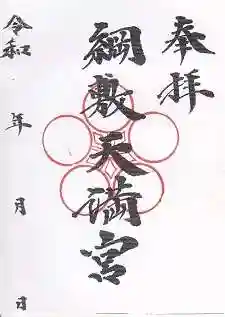 奉拝
綱敷天満宮
令和 年 月 日